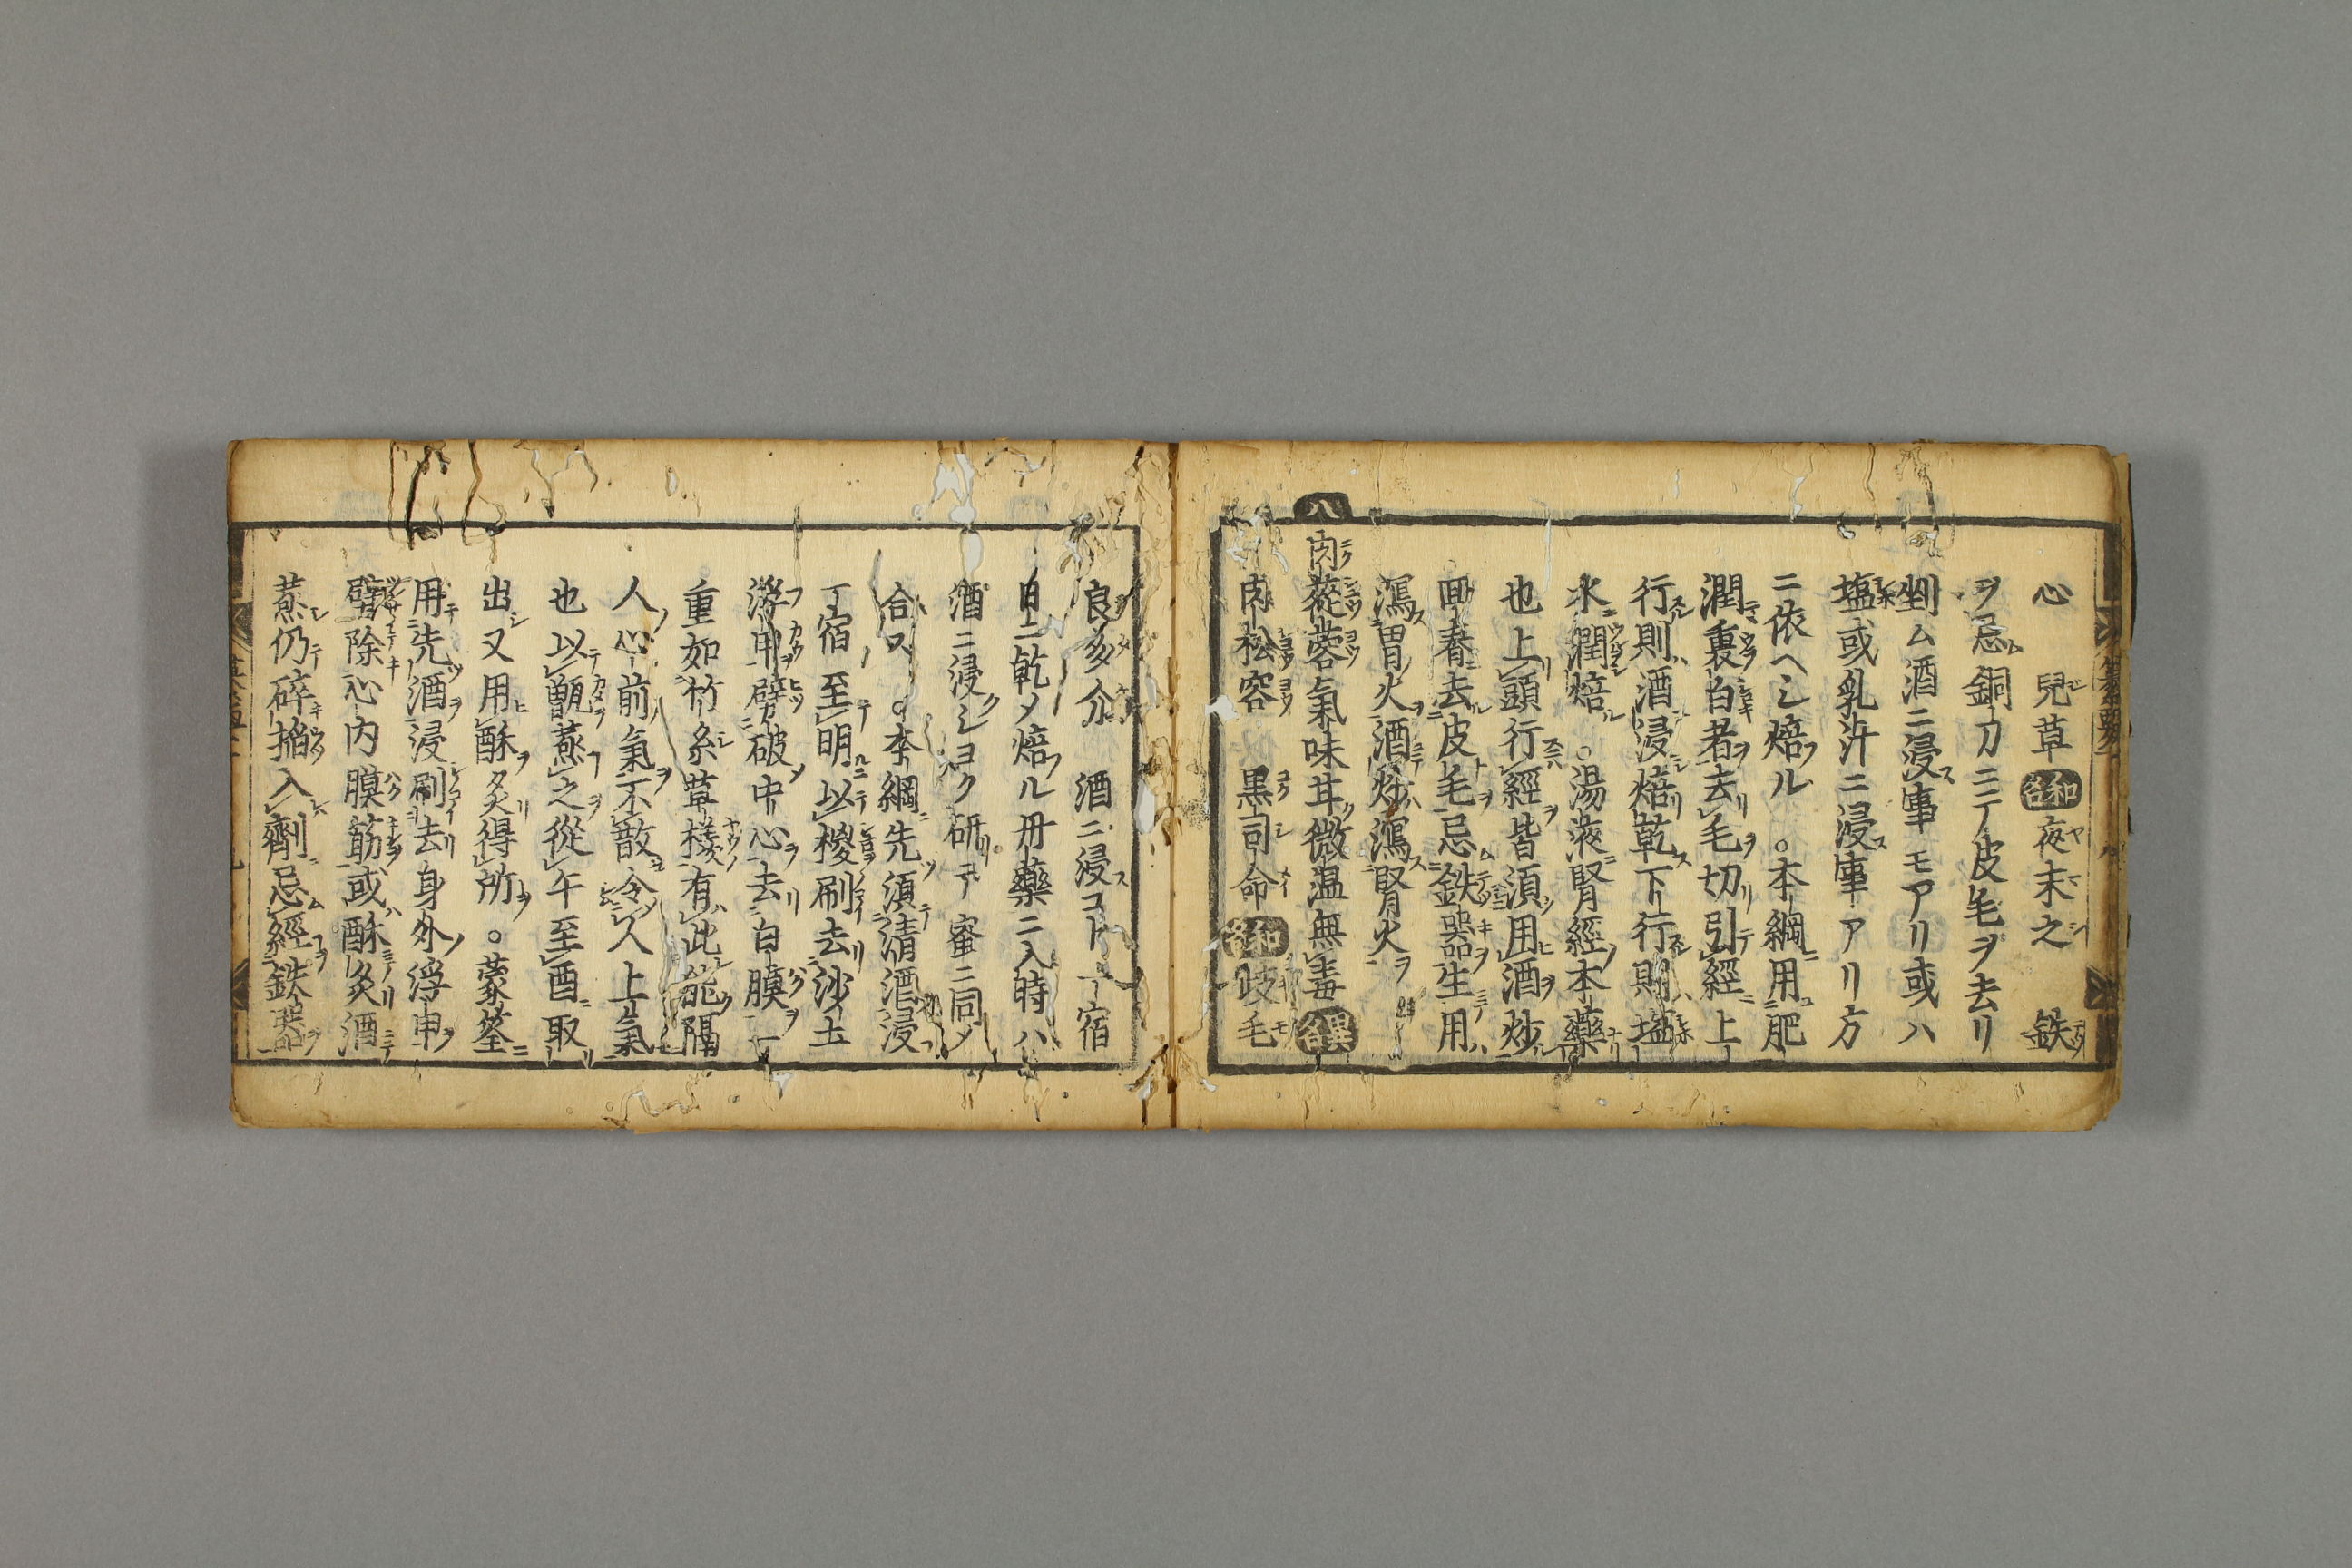 心 兒草 和名 夜末之 鉄
ヲ忌銅刀ニテ皮毛ヲ去リ
剉ム酒ニ浸事モアリ或ハ
塩或乳汁ニ浸事アリ方
ニ依ヘシ焙ル 。本綱用肥
潤裏白者去毛切引經上
行則酒浸焙乾下行則塩
水潤焙 。湯液腎經本藥
也上頭行經皆須用酒炒
回春去皮毛忌鉄器生用
瀉胃火酒炒瀉腎火
八
肉蓯蓉氣味甘微温無毒 異名
肉松容 黒司命 和名 岐毛
良多介 酒ニ浸コト一宿
日ニ乾メ焙ル丹藥ニ入時ハ
酒ニ浸シヨク研テ蜜ニ同メ
合ス 。本綱先須清酒浸
一宿至明以椶刷去沙土
浮甲劈破中心去白膜一
重如竹糸草様有此能隔
人心前氣不散令人上氣
也以甑蒸之從午至酉取
出又用酥炙得所 。蒙筌
用先酒浸刷去身外浮甲
劈除心内膜筋或酥炙酒
蒸仍碎掐入劑忌經鉄器